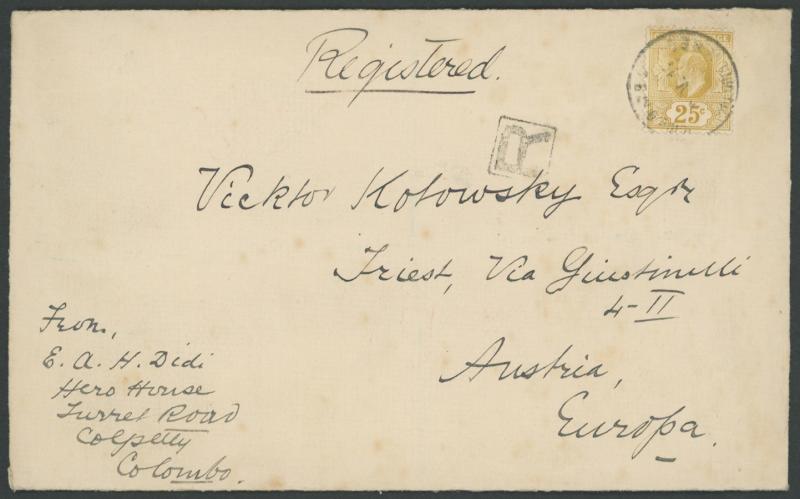 Registered.
25c
R
Vicktor Kotowsky Esqr
Triest, Via Giustinelli
4-II
Austria,
Europa.
From,
E. A. H. Didi
Hero House
Turret Road
Colpetty
Colombo.